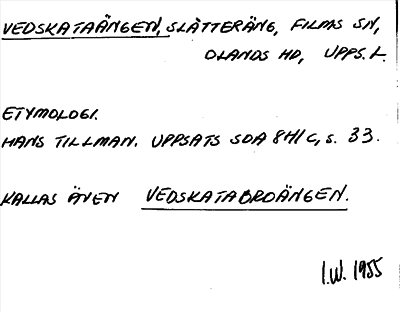 VEDSKATAÄNGEN, SLÅTTERÄNG, FILMS SN,
OLANDS HD, UPPS. L.
ETYMOLOGI.
HANS TILLMAN. UPPSATS SOA 8H1C, S. 33.
KALLAS ÄVEN VEDSKATABROÄNGEN.
I.W. 1955